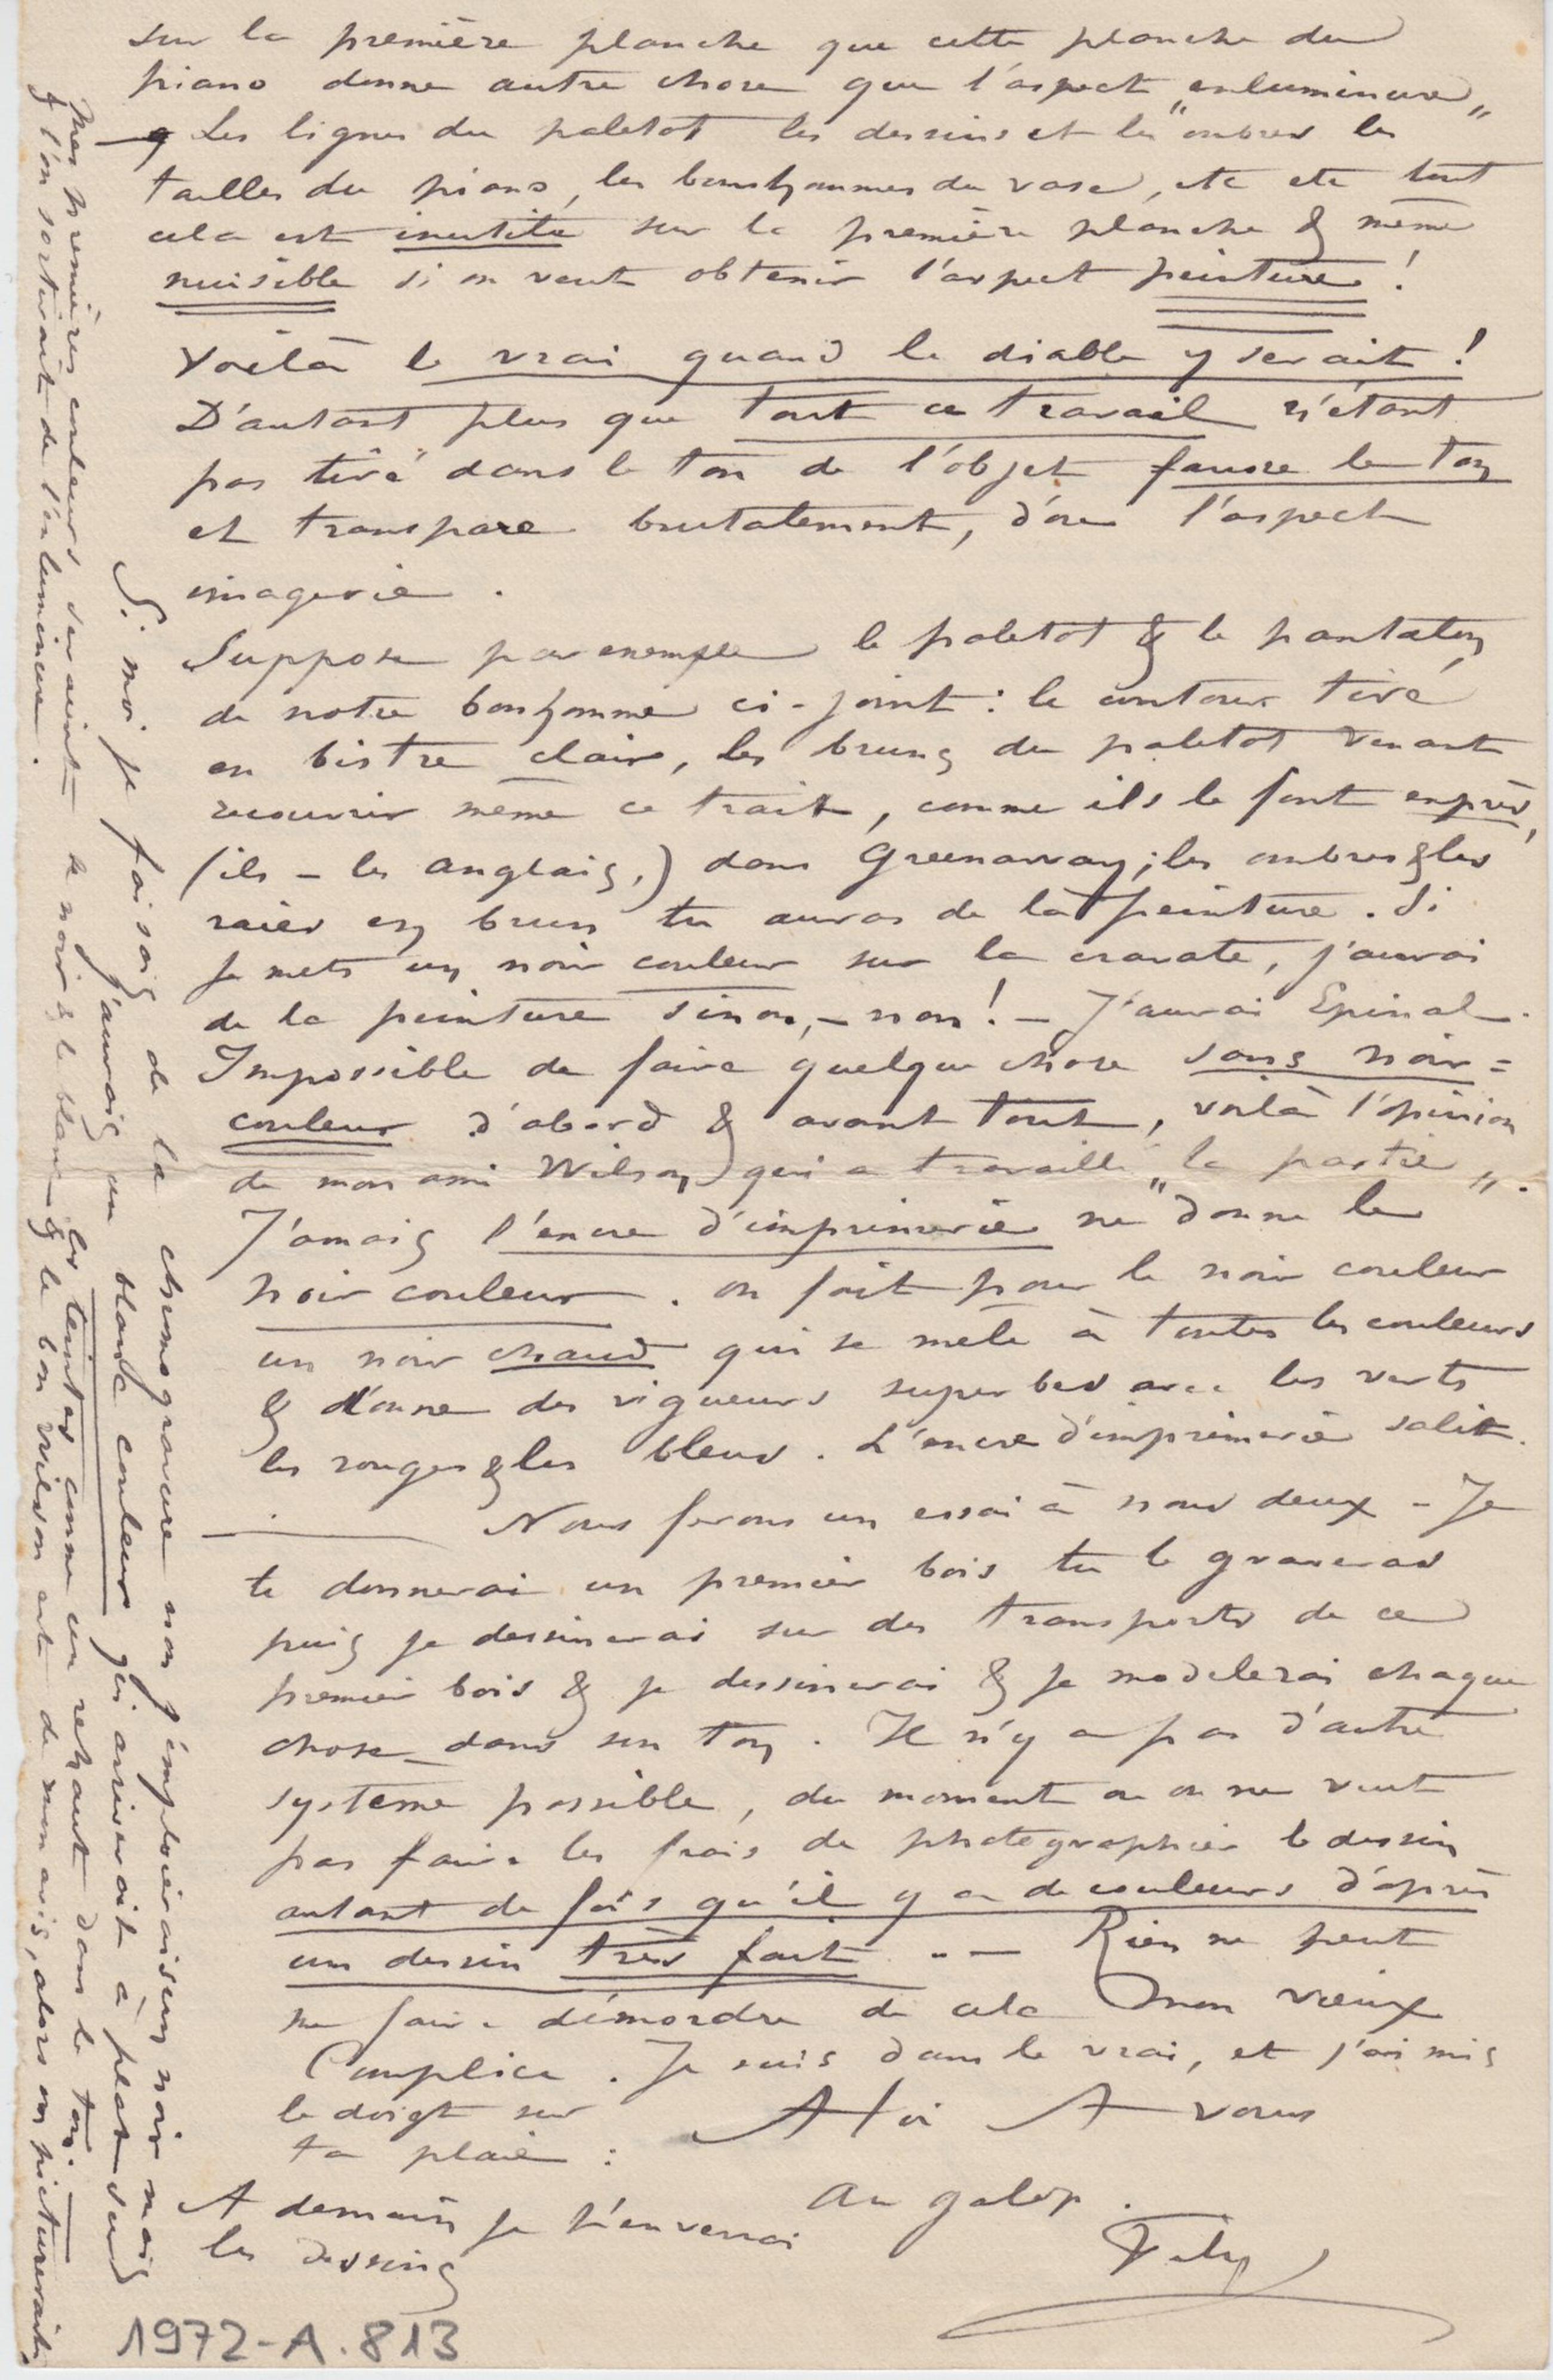 sur la première planche que cette planche du
piano donne autre chose que l'aspect "enluminure"
Les lignes du paletot les dessins et les ombres les
tailles du piano, les bonshommes du vase, etc etc tout
cela est inutile sur la première planche & même
nuisible si on veut obtenir l'aspect peinture !
Voilà le vrai quand le diable y serait !
D'autant plus que tout ce travail n'étant
pas tiré dans le ton de l'objet fausse le ton
et transpare brutalement, d'où l'aspect
imagerie.
Suppose par exemple le paletot & le pantalon
de notre bonhomme ci-joint : le contour tiré
en bistre clair, les bruns du paletot venant
recouvrir même ce trait, comme ils le font exprès,
(ils - les anglais,) dans Greenaway; les ombres & les
raies en brun tu auras de la peinture. Si
je mets un noir couleur sur la cravate, j'aurai
de la peinture sinon, - non ! - J'aurai Epinal.
Impossible de faire quelque chose sans noir =
couleur d'abord & avant tout, voilà l'opinion
de mon ami Wilson qui a travaillé "la partie".
Jamais l'encre d'imprimerie ne donne le
noir couleur. on fait pour le noir couleur
un noir chaud qui se mêle à toutes les couleurs
& donne des vigueurs superbes avec les verts
les rouges & les bleus. L'encre d'imprimerie salit.
Nous ferons un essai à nous deux - Je
te donnerai un premier bois tu le graveras
puis je dessinerai sur des transports de ce
premier bois & je dessinerai & je modelerai chaque
chose dans son ton. Il n'y a pas d'autre
système possible, du moment où on ne veut
pas faire les frais de photographier le dessin
autant de fois qu'il y a de couleurs d'après
un dessin très fait. - Rien ne peut
me faire démordre de cela mon vieux
Complice. Je suis dans le vrai, et j'ai mis
le doigt sur
ta plaie :
A toi A vous
Au galop.
Fély
A demain je t'enverrai
les dessins
Si moi je faisais de la chromogravure non j'emploierais un noir mais
j'aurais un blanc couleur qui arriverait à plat sur
les teintes comme un rehaut dans le ton.
Mes premières couleurs seraient le noir & le blanc & le bon Wilson est de mon avis, alors on picturerait,
& l'on sortirait de l'enluminure.
1972-A.813